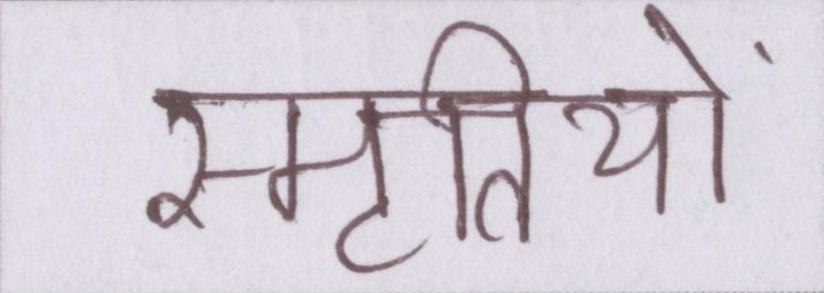 स्मृतियों